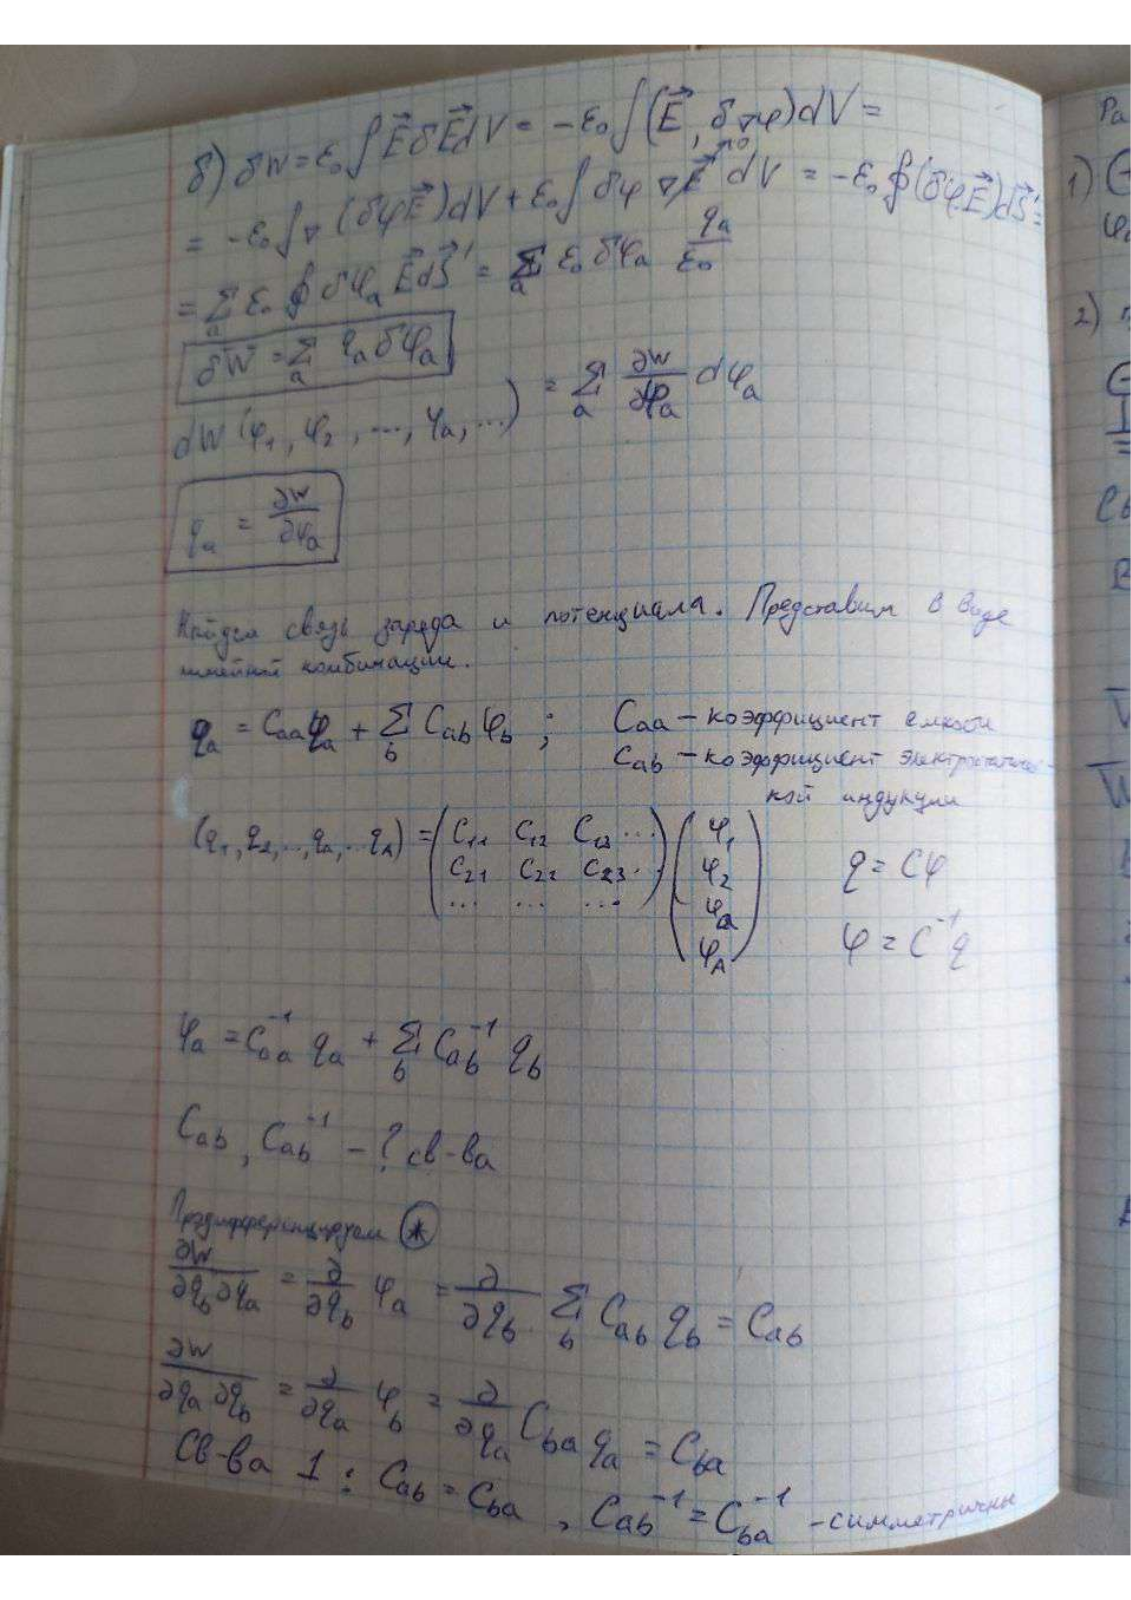 б) δW = ε₀ ∫ E⃗ δE⃗ dV = -ε₀ ∫ (E⃗, δ∇φ) dV =
= -ε₀ ∫ ∇ (δφE⃗) dV + ε₀ ∫ δφ ∇E⃗ dV = -ε₀ ∮ (δφE⃗) dS⃗ =
= Σ_a ε₀ ∮ δφ_a E⃗ dS⃗' = Σ_a ε₀ δφ_a q_a/ε₀
δW = Σ_a q_a δφ_a
dW (φ₁, φ₂, ..., φ_a, ...) = Σ_a ∂W/∂φ_a dφ_a
q_a = ∂W/∂φ_a
Найдём связь заряда и потенциала. Представим в виде
линейной комбинации.
q_a = C_aa φ_a + Σ_b C_ab φ_b ; C_aa – коэффициент емкости
C_ab – коэффициент электростатичес-
кой индукции
(q₁, q₂, ..., q_a, ... q_A) = (C₁₁ C₁₂ C₁₃ ... C₂₁ C₂₂ C₂₃ ... ... ... ...) (φ₁ φ₂ φ_a φ_A) q = Cφ
φ = C⁻¹q
φ_a = C_aa⁻¹ q_a + Σ_b C_ab⁻¹ q_b
C_ab, C_ab⁻¹ – ? св-ва
Продифференцируем (*)
∂W/∂q_b ∂q_a = ∂/∂q_b φ_a = ∂/∂q_b Σ_b C_ab q_b = C_ab
∂W/∂q_a ∂q_b = ∂/∂q_a φ_b = ∂/∂q_a C_ba q_a = C_ba
Св-ва 1 : C_ab = C_ba , C_ab⁻¹ = C_ba⁻¹ – симметричны
1)
2)